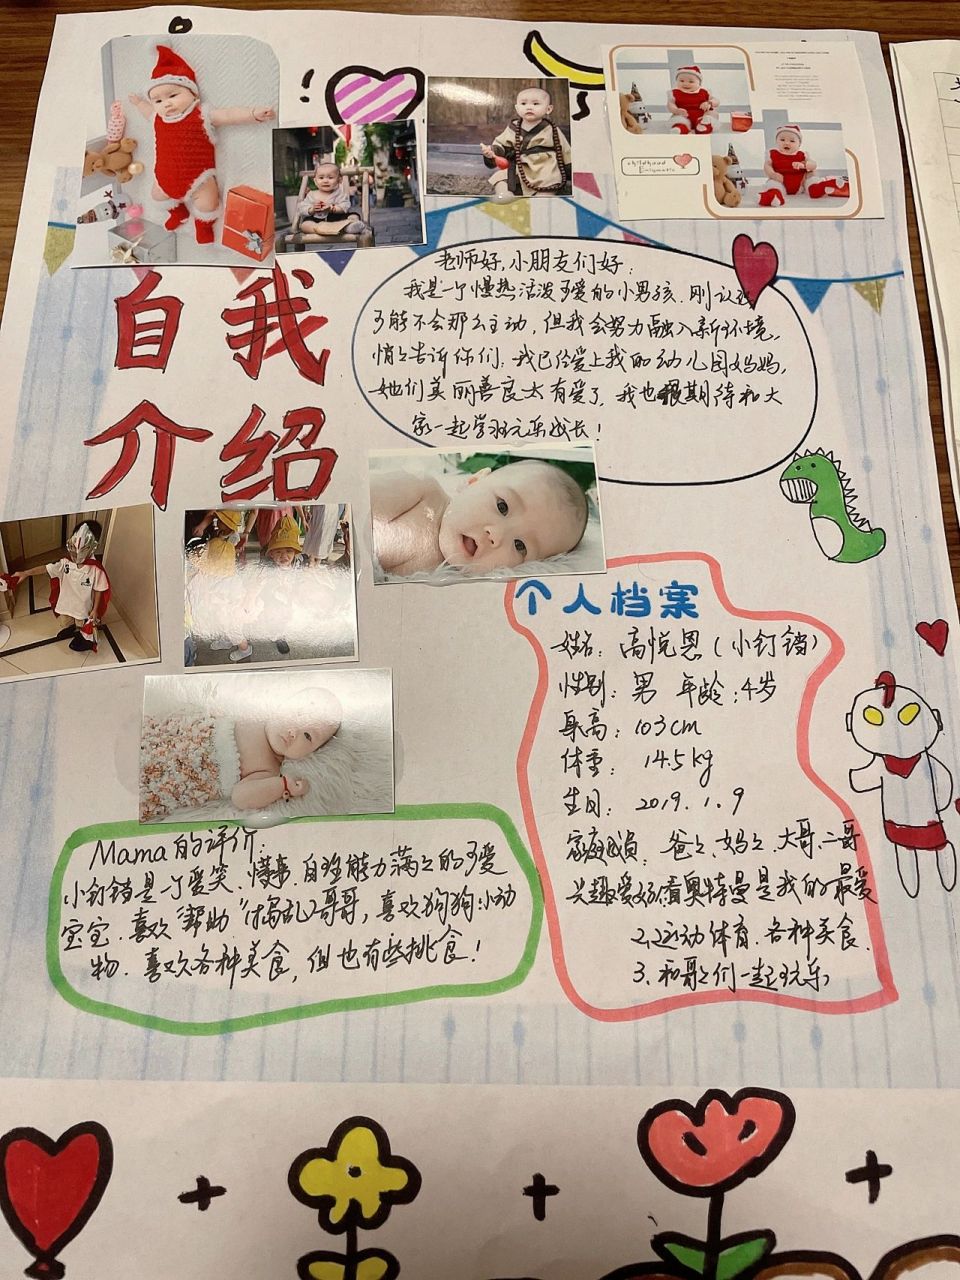 childhood
自我
介绍
老师好,小朋友们好:
我是一个慢热活泼可爱的小男孩.刚认
可能不会那么主动,但我会努力融入新环境,
悄々告诉你们:我已经爱上我的幼儿园妈妈,
她们美丽善良太有爱了,我也很期待和大
家一起学习玩乐成长!
个人档案
姓名:高悦恩(小钉铛)
性别:男 年龄:4岁
身高:103cm
体重:14.5kg
生日:2019.1.9
家庭成员:爸々、妈々、大哥、二哥
兴趣爱好:看奥特曼是我的最爱
2,运动体育.各种美食.
3.和哥々们一起玩乐,
Mama的评价:
小钉铛是一个爱笑、懂事.自理能力满々的可爱
宝宝.喜欢"帮助"(捣乱)哥哥,喜欢狗狗小动
物.喜欢各种美食,但也有些挑食!
+ + +